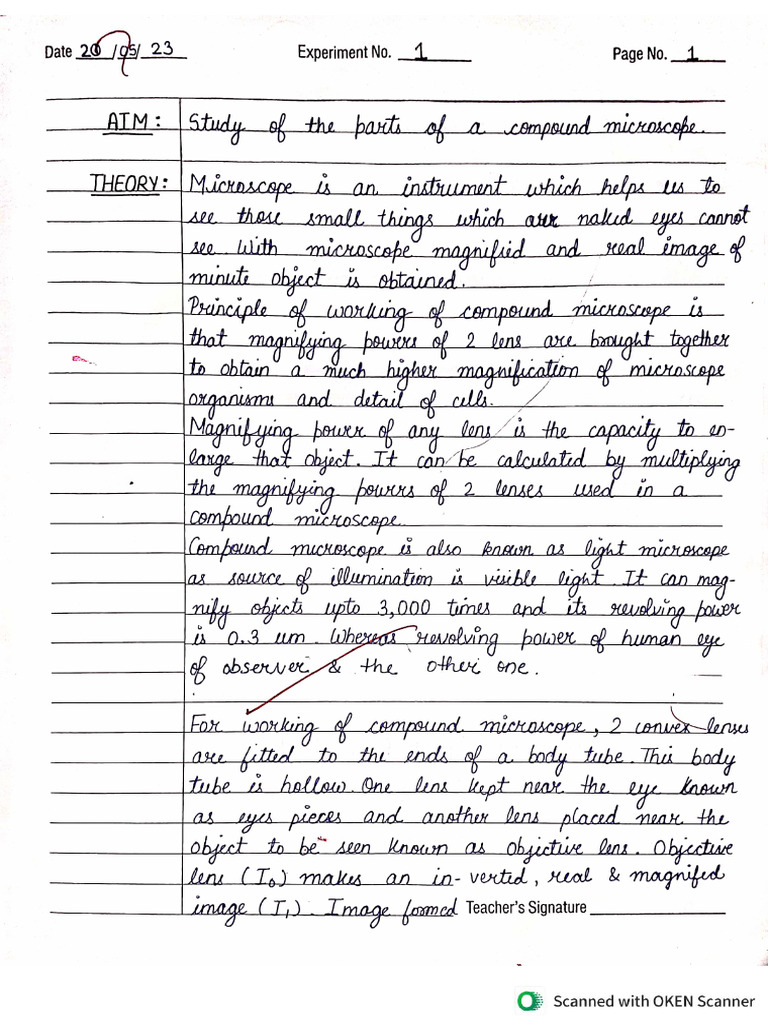 Date 20/05/23 Experiment No. 1 Page No. 1
AIM: Study of the parts of a compound microscope.
THEORY: Microscope is an instrument which helps us to
see those small things which our naked eyes cannot
see. With microscope magnified and real image of
minute object is obtained.
Principle of working of compound microscope is
that magnifying powers of 2 lens are brought together
to obtain a much higher magnification of microscope
organisms and detail of cells.
Magnifying power of any lens is the capacity to en-
large that object. It can be calculated by multiplying
the magnifying powers of 2 lenses used in a
compound microscope.
Compound microscope is also known as light microscope
as source of illumination is visible light. It can mag-
nify objects upto 3,000 times and its revolving power
is 0.3 um. Whereas revolving power of human eye
of observer & the other one.
For working of compound microscope, 2 convex lenses
are fitted to the ends of a body tube. This body
tube is hollow. One lens kept near the eye known
as eyes pieces and another lens placed near the
object to be seen known as objective lens. Objective
lens (I₀) makes an in-verted, real & magnifed
image (I₁). Image formed Teacher's Signature
Scanned with OKEN Scanner